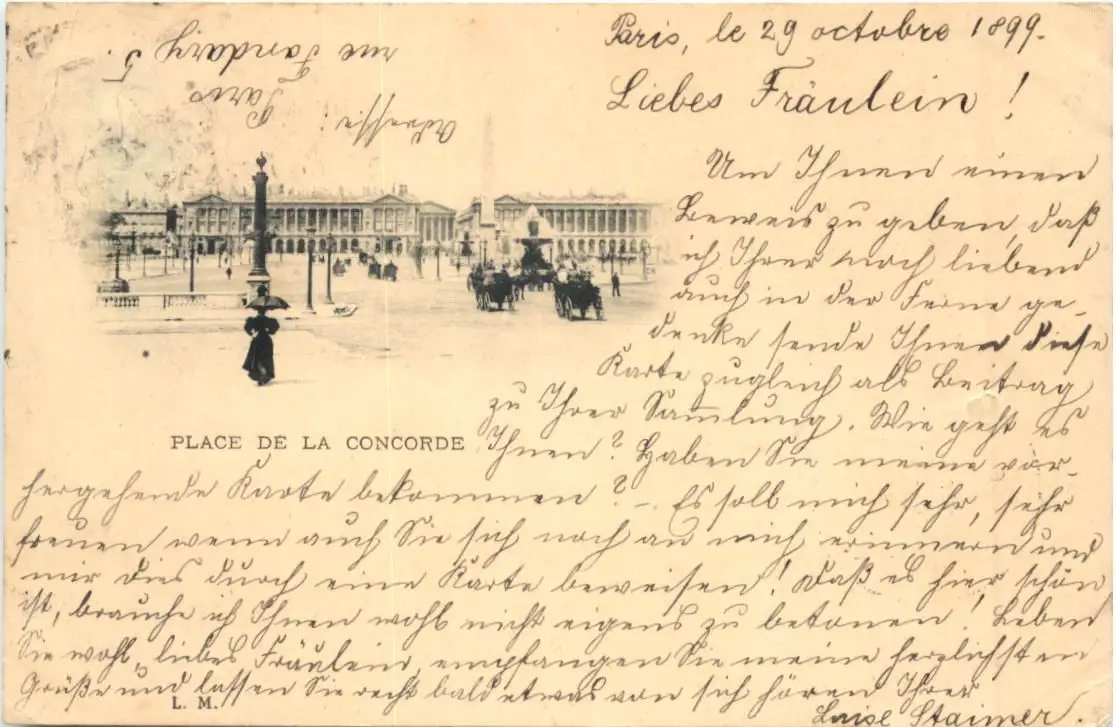 Paris, le 29 octobre 1899.
Liebes Fräulein!
Um Ihnen einen
Beweis zu geben, daß
ich Ihrer noch liebend
auch in der Ferne ge-
denke sende Ihnen diese
Karte zugleich als Beitrag
zu Ihrer Sammlung. Wie geht es
Ihnen? Haben Sie meine vor-
hergehende Karte bekommen? – Es soll mich sehr, sehr
freuen wenn auch Sie sich noch an mich erinnern und
mir dies durch eine Karte beweisen! Daß es hier schön
ist, brauche ich Ihnen wohl nicht eigens zu betonen! Leben
Sie wohl, liebes Fräulein, empfangen Sie meine herzlichsten
Grüße und lassen Sie recht bald etwas von sich hören Ihrer
Luise Staimer.
Adresse:
Paris
rue 5.
PLACE DE LA CONCORDE
L. M.